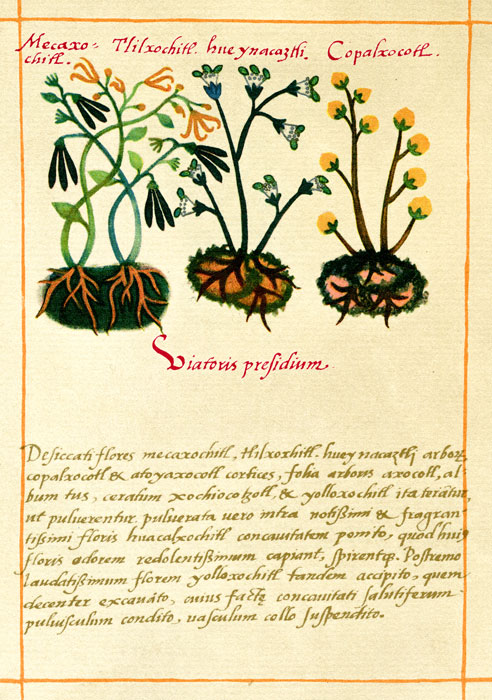 Mecaxo= Tlilxochitl. huey nacaztli. Copalxocotl.
chitl.
Viatoris presidium
Desiccati flores mecaxochitl, tlilxochitl. huey nacaztlj arborȝ
copalxocotl & atoyaxocotl cortices, folia arboris axocotl, al-
bum tus, ceratum xochiocotzotl, & yolloxochitl ita terātur,
ut pulverentur, pulverata vero intra notissimi & fragran-
tissimi floris huacalxochitl concavitatem ponito, quod huiꝰ
floris odorem redolentissimum capiant, spirentqꝫ. Postremo
laudatissimum florem yolloxochitl tandem accipito, quem
decenter excavāto, cuius factę concavitati salutiferum
pulvisculum condito, vasculum collo suspendito.